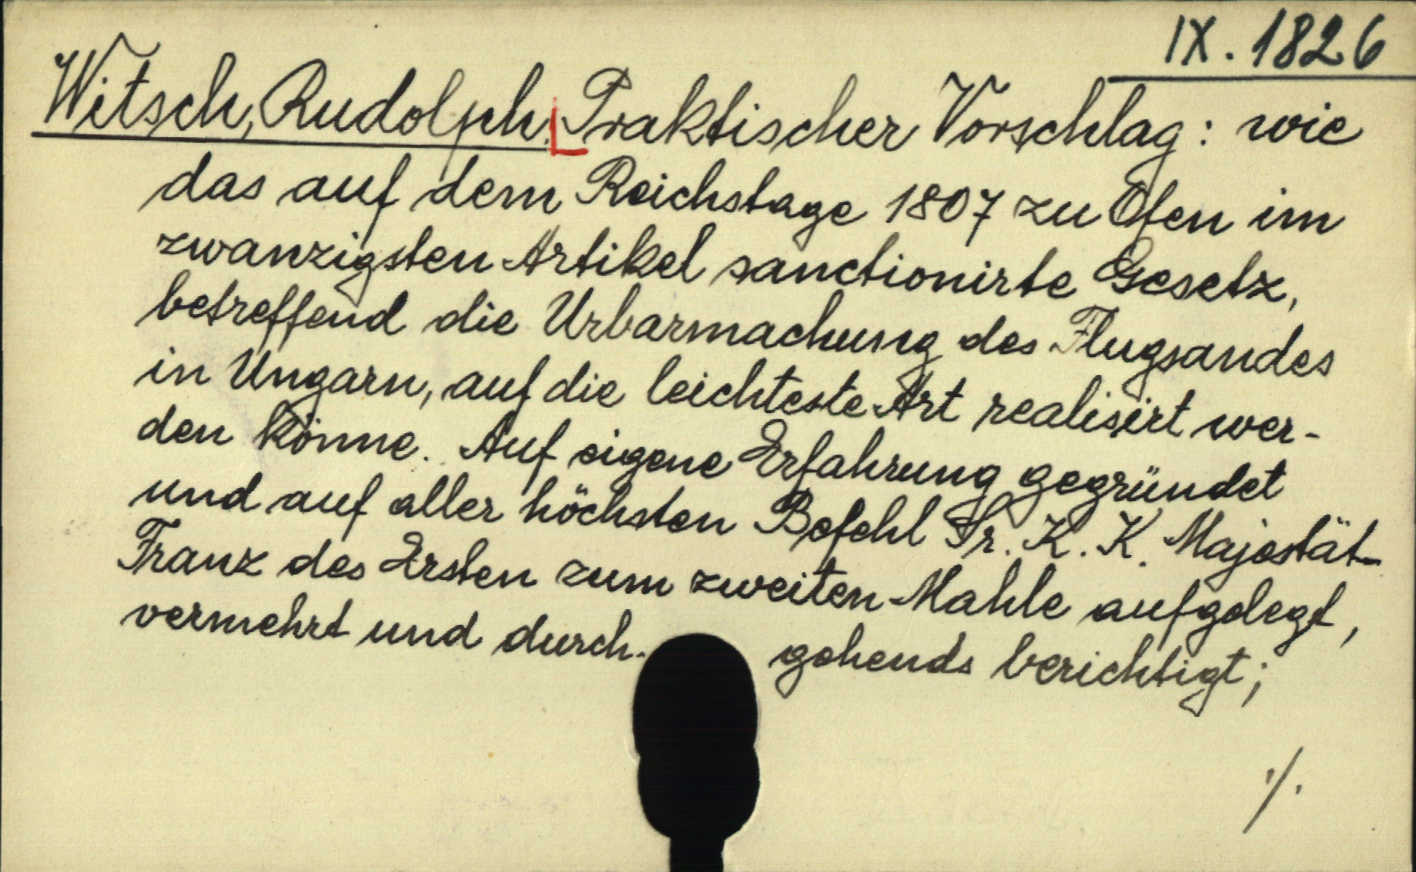 IX. 1826
Witsch, Rudolph. Praktischer Vorschlag: wie
das auf dem Reichstage 1807 zu Ofen im
zwanzigsten Artikel sanctionirte Gesetz,
betreffend die Urbarmachung des Flugsandes
in Ungarn, auf die leichteste Art realisirt wer-
den könne. Auf eigene Erfahrung gegründet
und auf aller höchsten Befehl Sr. K. K. Majestät
Franz des Ersten zum zweiten Mahle aufgelegt,
vermehrt und durch- gehends berichtigt;
./.